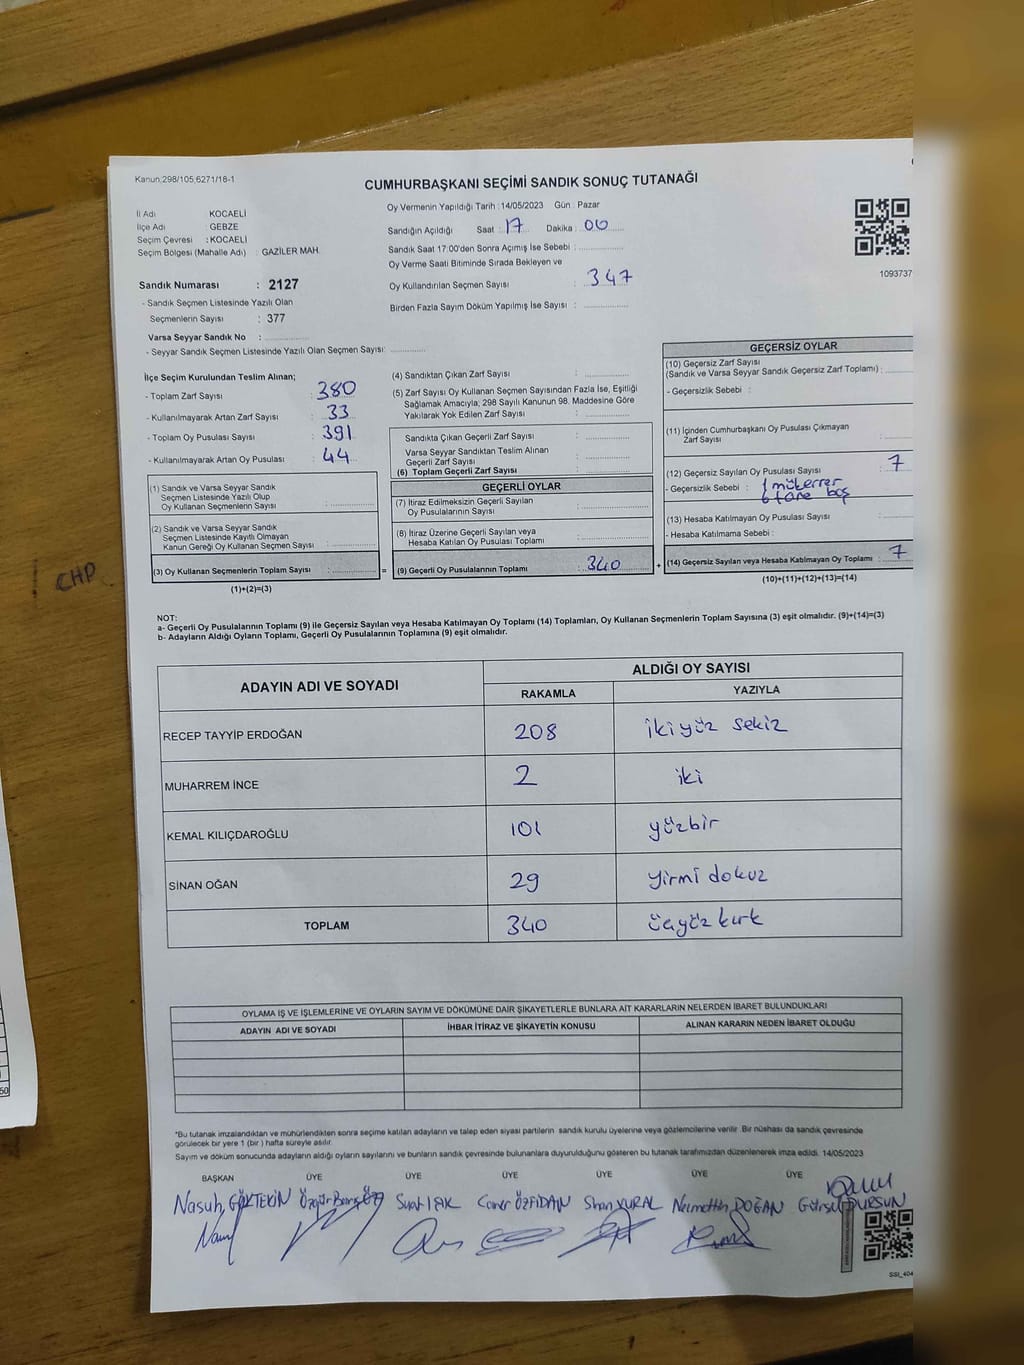 Kanun;298/105;6271/18-1
CUMHURBAŞKANI SEÇİMİ SANDIK SONUÇ TUTANAĞI
İl Adı KOCAELİ
İlçe Adı : GEBZE
Seçim Çevresi : KOCAELİ
Seçim Bölgesi (Mahalle Adı) : GAZİLER MAH.
Sandık Numarası : 2127
- Sandık Seçmen Listesinde Yazılı Olan
Seçmenlerin Sayısı : 377
Varsa Seyyar Sandık No :
- Seyyar Sandık Seçmen Listesinde Yazılı Olan Seçmen Sayısı:
Oy Vermenin Yapıldığı Tarih : 14/05/2023 Gün : Pazar
Sandığın Açıldığı Saat : 17 Dakika : 00
Sandık Saat 17:00'den Sonra Açımış İse Sebebi :
Oy Verme Saati Bitiminde Sırada Bekleyen ve
Oy Kullandırılan Seçmen Sayısı : 347
Birden Fazla Sayım Döküm Yapılmış İse Sayısı :
1093737
İlçe Seçim Kurulundan Teslim Alınan;
- Toplam Zarf Sayısı : 380
- Kullanılmayarak Artan Zarf Sayısı : 33
- Toplam Oy Pusulası Sayısı : 391
- Kullanılmayarak Artan Oy Pusulası : 44
(1) Sandık ve Varsa Seyyar Sandık
Seçmen Listesinde Yazılı Olup
Oy Kullanan Seçmenlerin Sayısı :
(2) Sandık ve Varsa Seyyar Sandık
Seçmen Listesinde Kayıtlı Olmayan
Kanun Gereği Oy Kullanan Seçmen Sayısı :
(3) Oy Kullanan Seçmenlerin Toplam Sayısı :
(1)+(2)=(3)
(4) Sandıktan Çıkan Zarf Sayısı :
(5) Zarf Sayısı Oy Kullanan Seçmen Sayısından Fazla İse, Eşitliği
Sağlamak Amacıyla; 298 Sayılı Kanunun 98. Maddesine Göre
Yakılarak Yok Edilen Zarf Sayısı :
Sandıkta Çıkan Geçerli Zarf Sayısı :
Varsa Seyyar Sandıktan Teslim Alınan
Geçerli Zarf Sayısı :
(6) Toplam Geçerli Zarf Sayısı :
GEÇERLİ OYLAR
(7) İtiraz Edilmeksizin Geçerli Sayılan
Oy Pusulalarının Sayısı :
(8) İtiraz Üzerine Geçerli Sayılan veya
Hesaba Katılan Oy Pusulası Toplamı :
= (9) Geçerli Oy Pusulalarının Toplamı : 340
GEÇERSİZ OYLAR
(10) Geçersiz Zarf Sayısı
(Sandık ve Varsa Seyyar Sandık Geçersiz Zarf Toplamı) :
- Geçersizlik Sebebi :
(11) İçinden Cumhurbaşkanı Oy Pusulası Çıkmayan
Zarf Sayısı :
(12) Geçersiz Sayılan Oy Pusulası Sayısı : 7
- Geçersizlik Sebebi : 1 mükerrer
6 tane boş
(13) Hesaba Katılmayan Oy Pusulası Sayısı :
- Hesaba Katılmama Sebebi :
+ (14) Geçersiz Sayılan veya Hesaba Katılmayan Oy Toplamı : 7
(10)+(11)+(12)+(13)=(14)
CHP
NOT:
a- Geçerli Oy Pusulalarının Toplamı (9) ile Geçersiz Sayılan veya Hesaba Katılmayan Oy Toplamı (14) Toplamları, Oy Kullanan Seçmenlerin Toplam Sayısına (3) eşit olmalıdır. (9)+(14)=(3)
b- Adayların Aldığı Oyların Toplamı, Geçerli Oy Pusulalarının Toplamına (9) eşit olmalıdır.
ADAYIN ADI VE SOYADI
ALDIĞI OY SAYISI
RAKAMLA YAZIYLA
RECEP TAYYİP ERDOĞAN 208 iki yüz sekiz
MUHARREM İNCE 2 iki
KEMAL KILIÇDAROĞLU 101 yüzbir
SİNAN OĞAN 29 yirmi dokuz
TOPLAM 340 üçyüz kırk
OYLAMA İŞ VE İŞLEMLERİNE VE OYLARIN SAYIM VE DÖKÜMÜNE DAİR ŞİKAYETLERLE BUNLARA AİT KARARLARIN NELERDEN İBARET BULUNDUKLARI
ADAYIN ADI VE SOYADI İHBAR İTİRAZ VE ŞİKAYETİN KONUSU ALINAN KARARIN NEDEN İBARET OLDUĞU
*Bu tutanak imzalandıktan ve mühürlendikten sonra seçime katılan adayların ve talep eden siyası partilerin sandık kurulu üyelerine veya gözlemcilerine verilir. Bir nüshası da sandık çevresinde
görülecek bir yere 1 (bir ) hafta süreyle asılır.
Sayım ve döküm sonucunda adayların aldığı oyların sayılarını ve bunların sandık çevresinde bulunanlara duyurulduğunu gösteren bu tutanak tarafımızdan düzenlenerek imza edildi. 14/05/2023
BAŞKAN ÜYE ÜYE ÜYE ÜYE ÜYE ÜYE
Nasuh GÖKTEKİN Özgür Barış ÖZ Suat IŞIK Caner ÖZFİDAN VURAL Necmettin DOĞAN Gürsel DURSUN
50